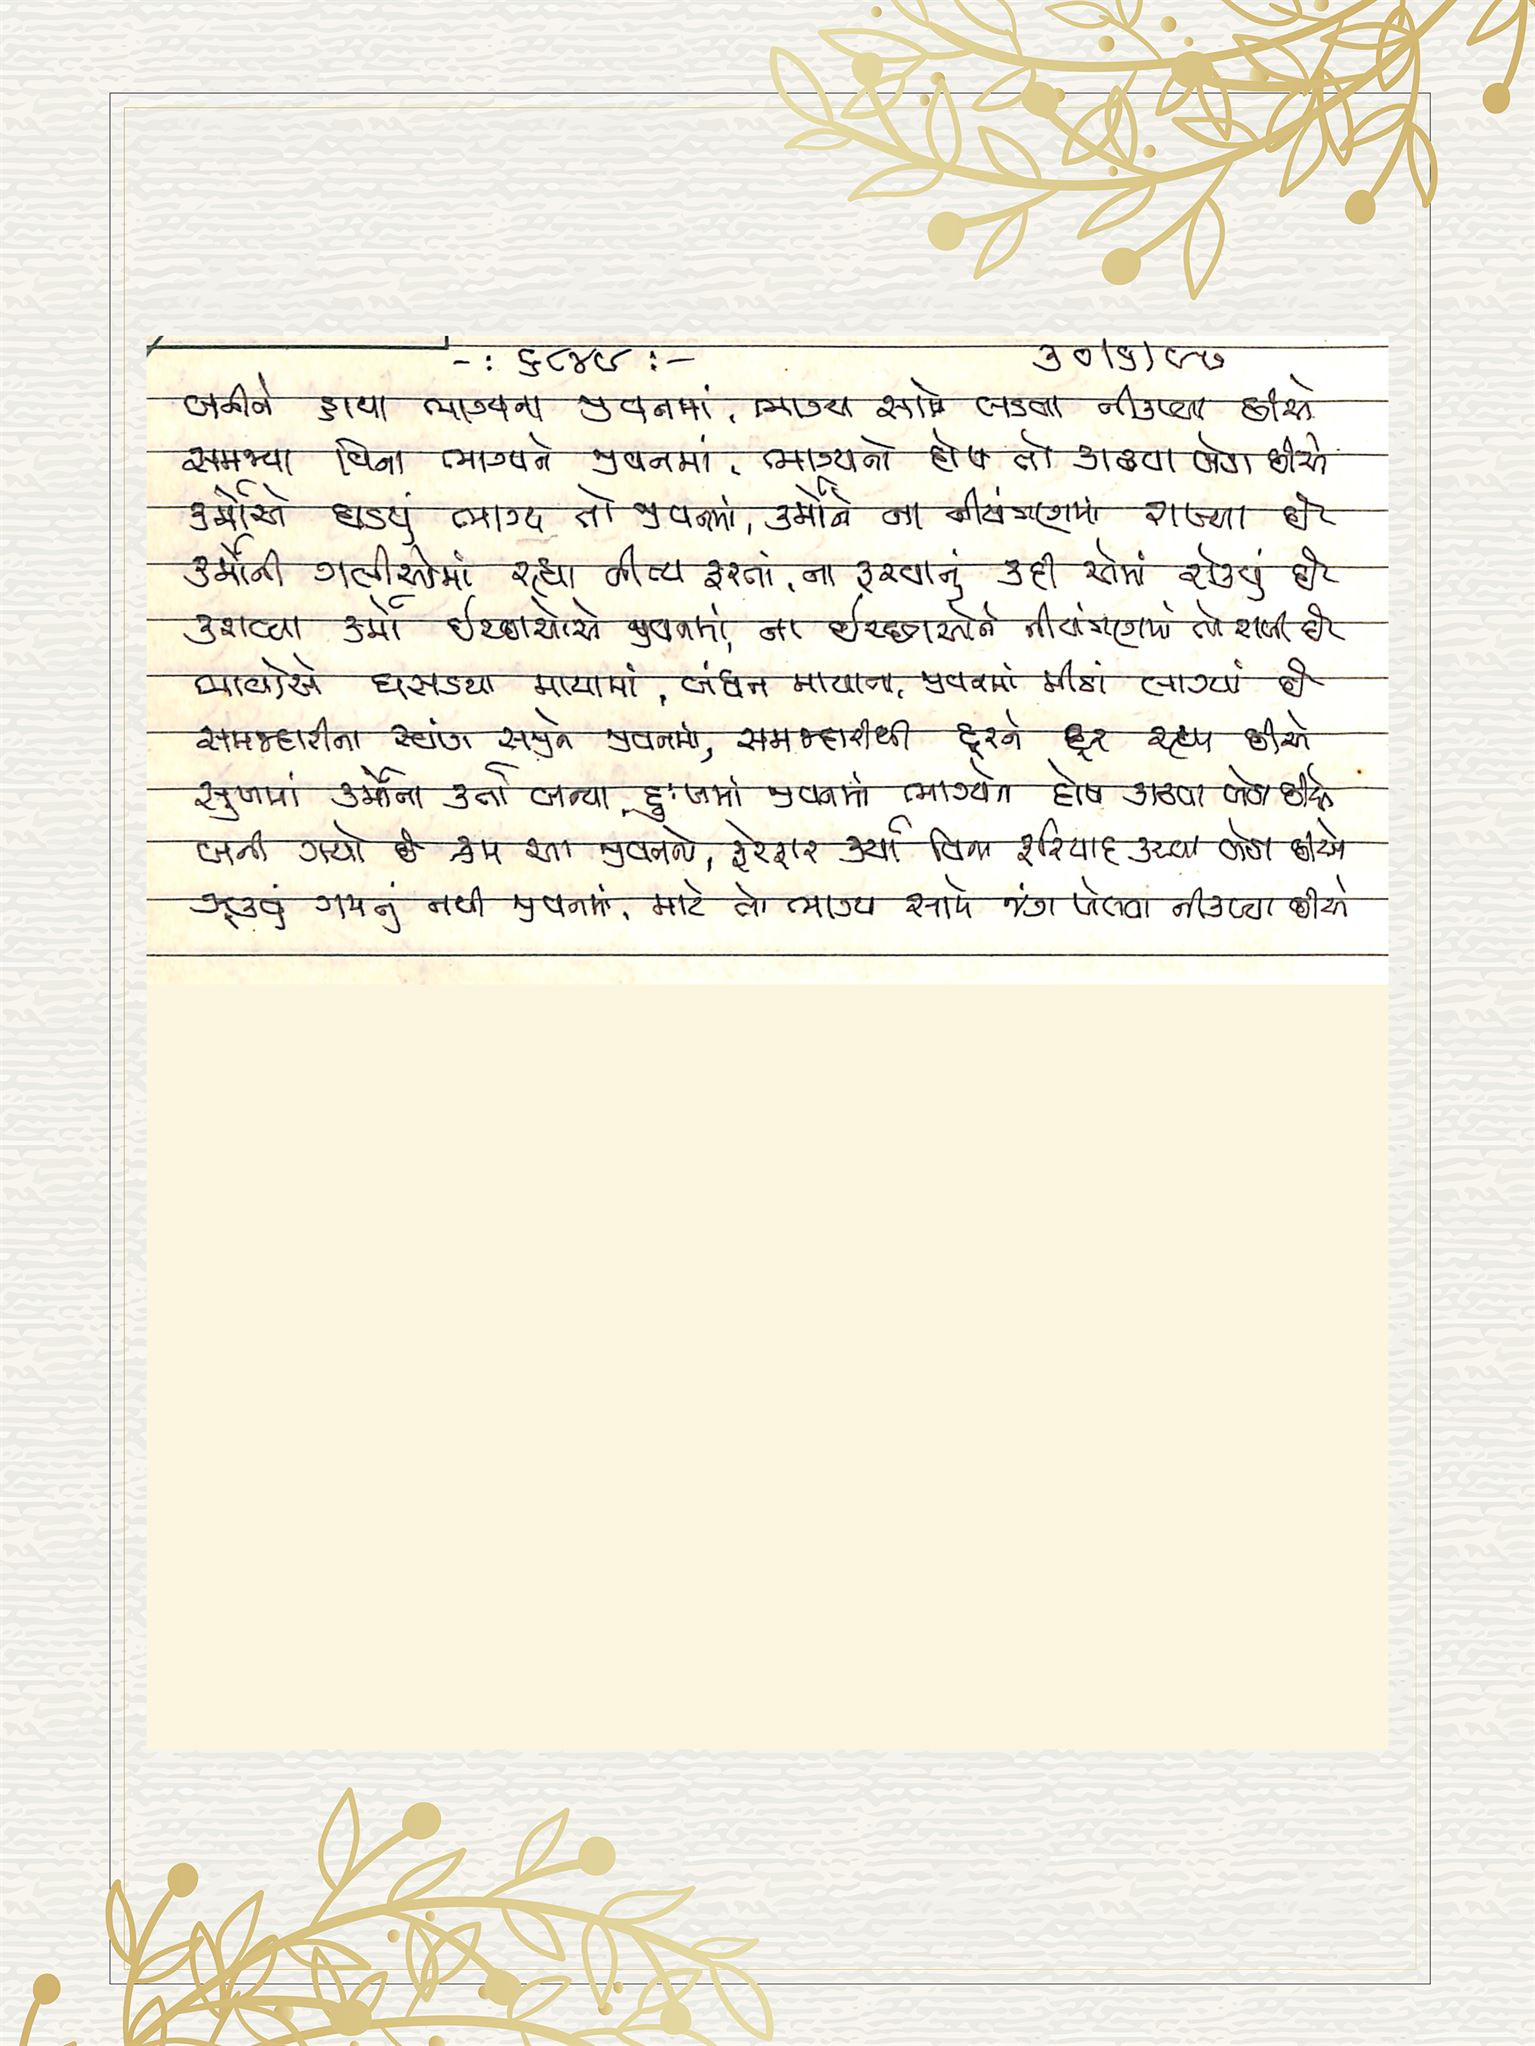 -: ૬૮૪૯ :- ૩૦/૫/૯૭
બનીને ડાયા ભાગ્યના જીવનમાં, ભાગ્ય સામે લડવા નીકળ્યા છીએ
સમજ્યા વિના ભાગ્યને જીવનમાં, ભાગ્યનો દોષ તો કાઢવા બેઠા છીએ
કર્મોએ ઘડયું ભાગ્ય તો જીવનમાં, કર્મોને ના નીયંત્રણમાં રાખ્યા છે
કર્મોની ગલીઓમાં રહ્યા નીત્ય ફરતાં, ના ફરવાનું કદી એમાં રોકાયું છે
કરાવ્યા કર્મો ઈચ્છાઓએ જીવનમાં, ના ઈચ્છાઓને નીયંત્રણમાં તો રાખી છે
ભાવોએ ઘસડયા માયામાં, બંધન માયાના, જીવનમાં મીઠાં લાગ્યાં છે
સમજદારીના સ્વાંગ સજીને જીવનમાં, સમજદારીથી દૂરને દૂર રહ્યા છીએ
સુખમાં કર્મોના કર્તા બન્યા, દુઃખમાં જીવનમાં ભાગ્યને દોષ કાઢવા બેઠા છીએ
બની ગયો છે ક્રમ આ જીવનનો, ફેરફાર કર્યા વિના ફરિયાદ કરવા બેઠા છીએ
ઝૂકવું ગમતું નથી જીવનમાં, માટે તો ભાગ્ય સામે જંગ ખેલવા નીકળ્યા છીએ